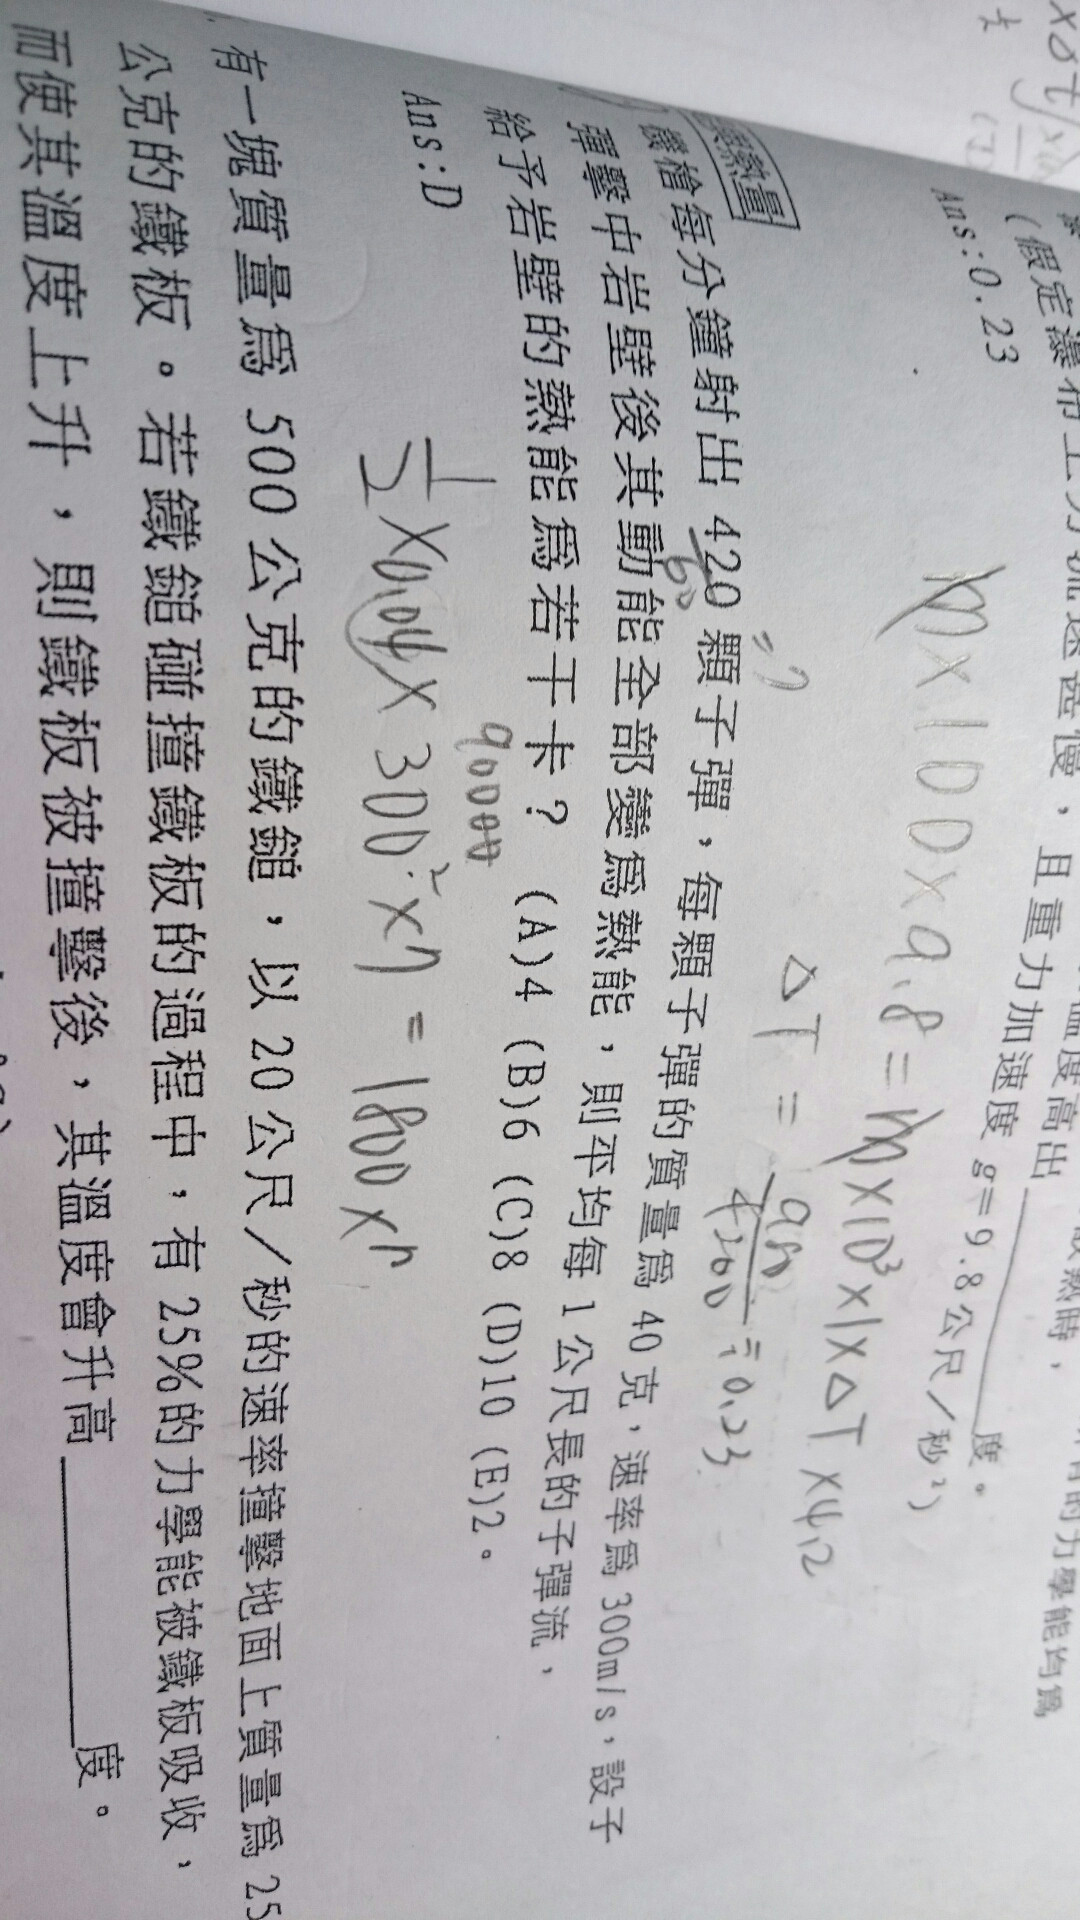 (假定瀑布上方流速甚慢，且重力加速度 g=9.8公尺/秒²)
度。
Ans:0.23
m×100×9.8=m×10³×1×ΔT×4.2
ΔT = 980/4200 = 0.23
熱量
機槍每分鐘射出 420 顆子彈，每顆子彈的質量為 40 克，速率為 300m/s，設子
60
=7
彈擊中岩壁後其動能全部變為熱能，則平均每 1 公尺長的子彈流，
給予岩壁的熱能為若干卡？ (A)4 (B)6 (C)8 (D)10 (E)2。
Ans:D
90000
1/2×0.04×300²×7=1800×7
有一塊質量為 500 公克的鐵鎚，以 20 公尺/秒的速率撞擊地面上質量為 25
公克的鐵板。若鐵鎚碰撞鐵板的過程中，有 25%的力學能被鐵板吸收，
而使其溫度上升，則鐵板被撞擊後，其溫度會升高______度。